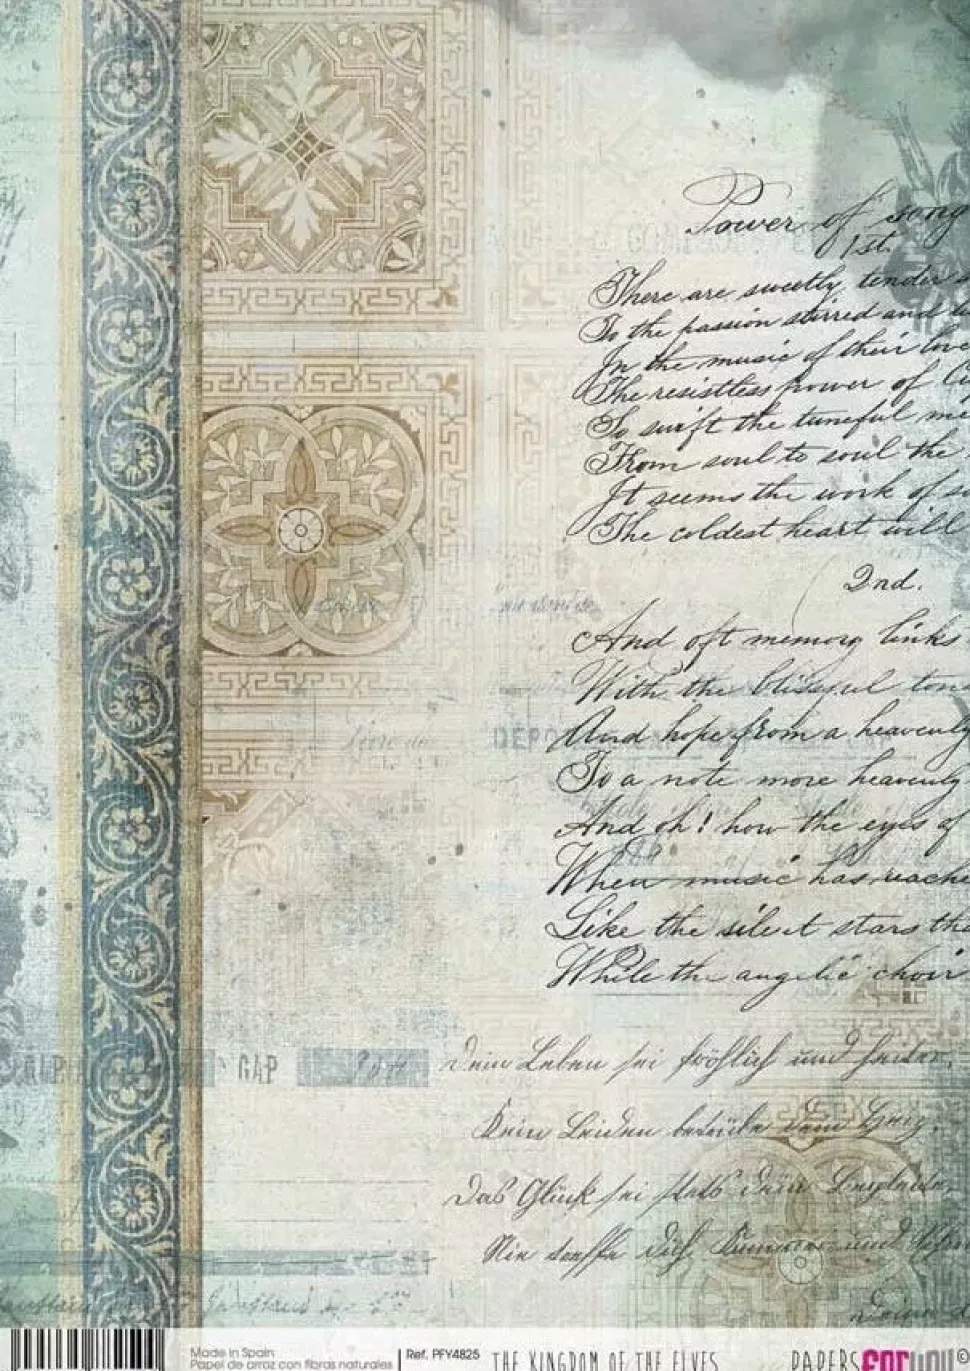 Power of song
1st.
There are sweetly tender
To the passion stirred and
In the music of their love
The resistless power of
So swift the tuneful me
From soul to soul the
It seems the work of
The coldest heart will
2nd.
And oft memory links
With the blissful ton
And hope from a heavenly
To a note more heavenly
And oh! how the eyes of
When music has reache
Like the silent stars tha
While the angelic choir
GAP
Dein Leben sei fröhlich und heiter,
Kein Leiden betrübe dein Herz,
Das Glück sei stets dein Begleite
Nie treffe dich Kummer und Schm
Made in Spain
Papel de arroz con fibras naturales
Ref. PFY4825
THE KINGDOM OF THE ELVES
PAPERS FOR YOU ©